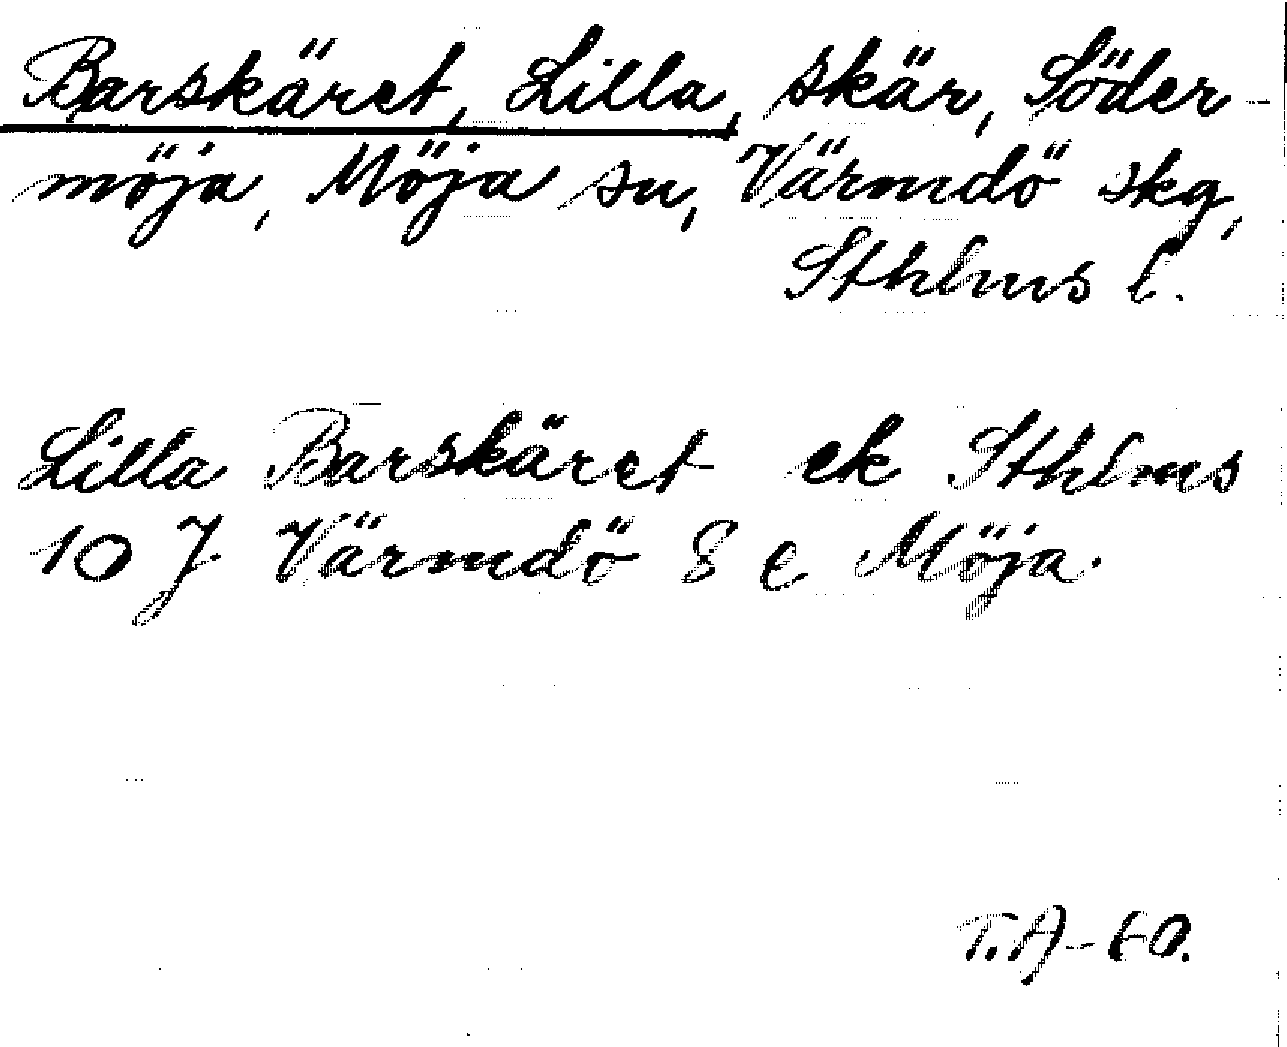 Barskäret, Lilla, skär, Söder-
möja, Möja sn, Värmdö skg,
Sthlms l.
Lilla Barskäret ek Sthlms
10 J. Värmdö 8 e Möja.
T.A-60.